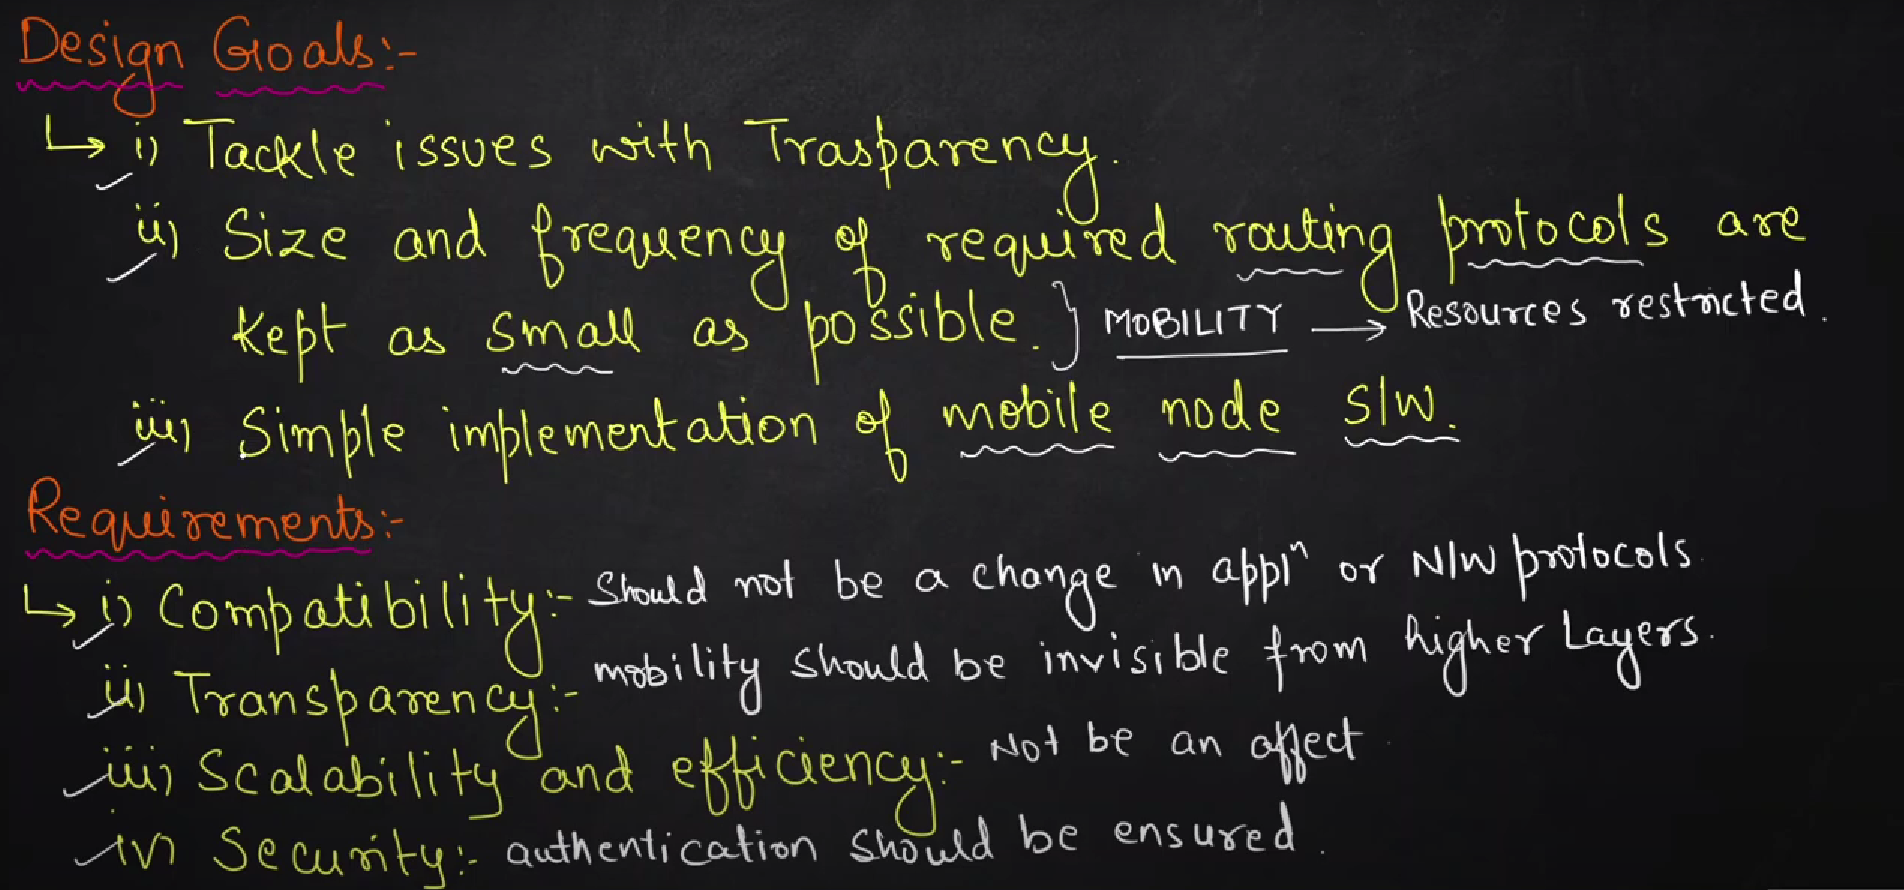 Design Goals:-
↳ i) Tackle issues with Trasparency.
ii) Size and frequency of required routing protocols are
kept as small as possible. } MOBILITY → Resources restricted.
iii) Simple implementation of mobile node S/W.
Requirements:-
↳ i) Compatibility:- Should not be a change in applⁿ or N/W protocols.
ii) Transparency:- mobility should be invisible from higher Layers.
iii) Scalability and efficiency:- Not be an affect.
iv) Security:- authentication should be ensured.